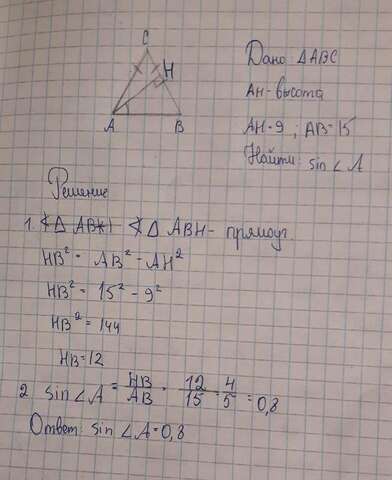 C
H
A
B
Дано: ΔABC
AH - высота
AH = 9 ; AB = 15
Найти: sin ∠A
Решение
1. ∢ Δ ABH - прямоуг
HB² = AB² - AH²
HB² = 15² - 9²
HB² = 144
HB = 12
2 sin∠A = HB/AB = 12/15 = 4/5 = 0,8
Ответ: sin ∠A = 0,8